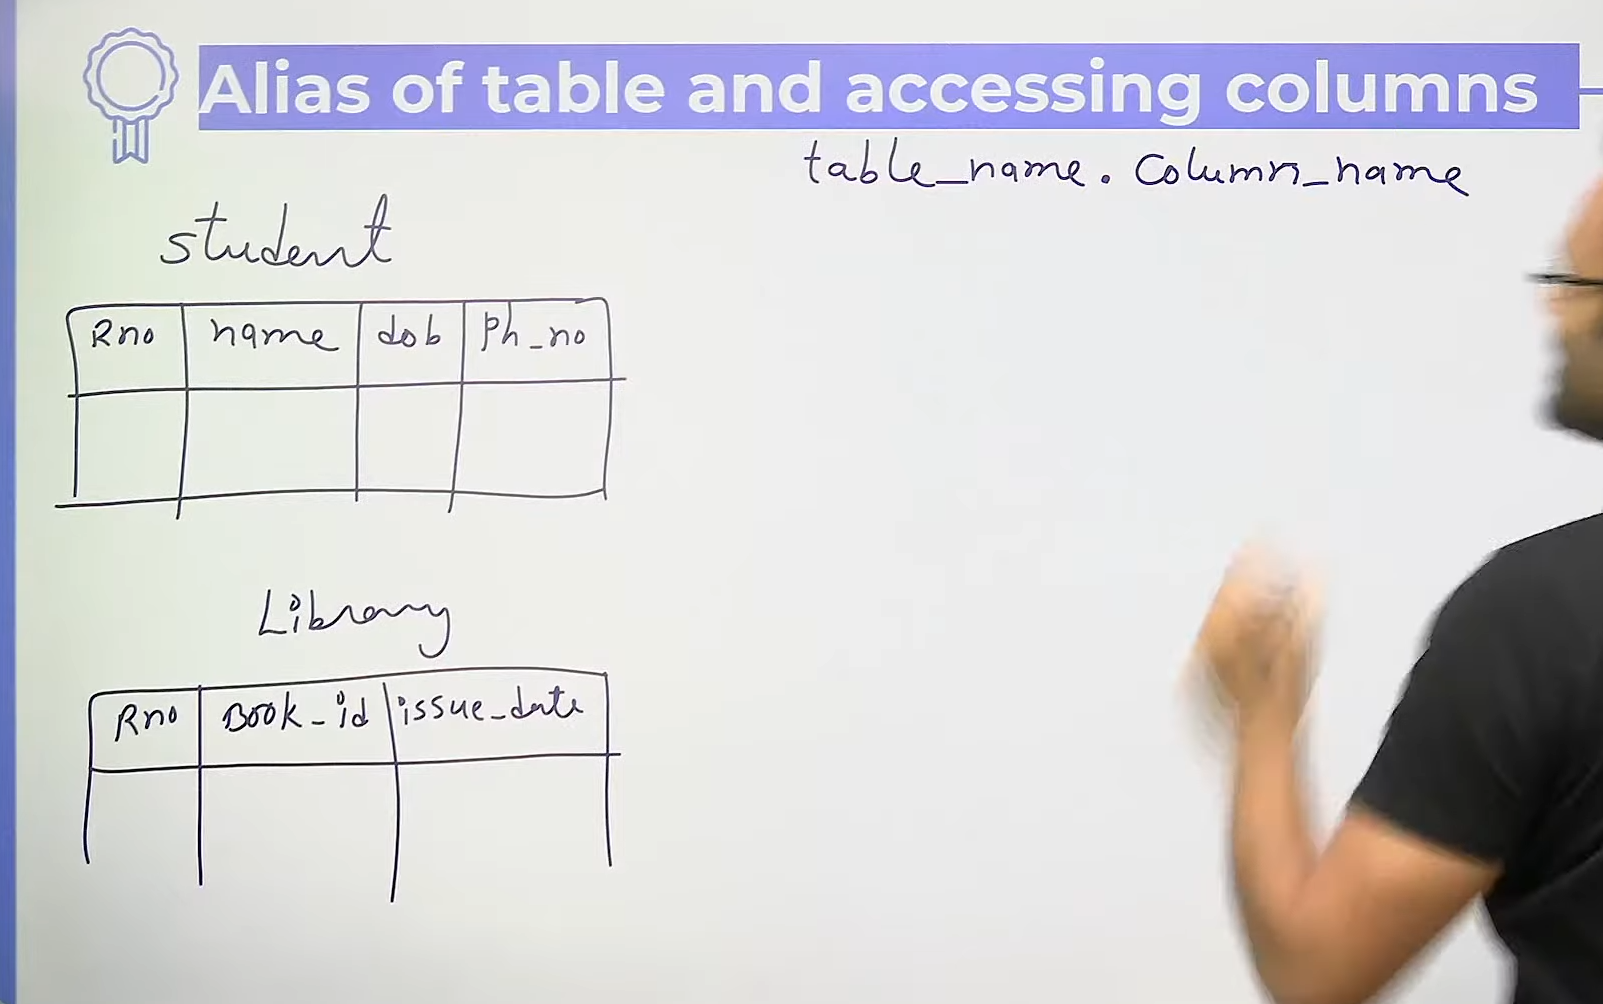 Alias of table and accessing columns
table_name. Column_name
student
Rno name dob Ph_no
Library
Rno Book_id issue_date